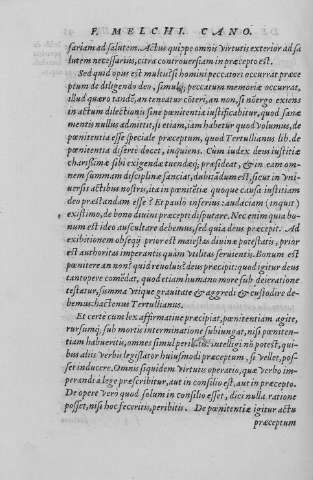 F. MELCHI. CANO.
sariam ad salutem. Actus quippe omnis virtutis exterior ad sa
lutem necessarius, citra controuersiam in præcepto est.
Sed quid opus est multis? si homini peccatori occurrat præce
ptum de diligendo deo, simulq; peccatum memoriæ occurrat,
illud quæro tandē, an teneatur cōteri, an non, si nō ergo exiens
in actum dilectionis sine pœnitentia iustificabitur, quod sanæ
mentis nullus admittit, si etiam, iam habetur quod volumus, de
pœnitentia esse speciale præceptum, quod Tertullianus lib. de
pœnitentia disertè docet, inquiens. Cum iudex deus iustitiæ
charissimæ sibi exigendæ tuendæq; præsideat, & in eam om-
nem summam disciplinæ sanciat, dubitādum est, sicut in vniuer
sis actibus nostris, ita in pœnitētiæ quoque causa iustitiam
deo præstandam esse? Et paulo inferius: audaciam (inquit)
existimo, de bono diuini præcepti disputare. Nec enim quia bo-
num est ideo auscultare debemus, sed quia deus præcepit. Ad
exhibitionem obsequij prior est maiestas diuinæ potestatis, prior
est authoritas imperantis quàm vtilitas seruientis. Bonum est
pœnitere an non? quid reuoluis? deus præcipit: quod igitur deus
tantopere comēdat, quod etiam humano more sub deieratione
testatur, summa vtique grauitate & aggredi & custodire de-
bemus hactenus Tertullianus.
Et certè cum lex affirmatiuè præcipiat, pœnitentiam agite,
rursumq; sub mortis interminatione subiungat, nisi pœniten-
tiam habueritis, omnes simul peribitis, intelligi nō potest, qui-
bus alijs verbis legislator huiusmodi præceptum, si vellet, pos-
set inducere. Omnis siquidem virtutis operatio, quæ verbo im-
perandi à lege præscribitur, aut in consilio est, aut in præcepto.
De opere vero quod solum in consilio esset, dici nulla ratione
posset, nisi hoc feceritis, peribitis. De pœnitentiæ igitur actu
præceptum